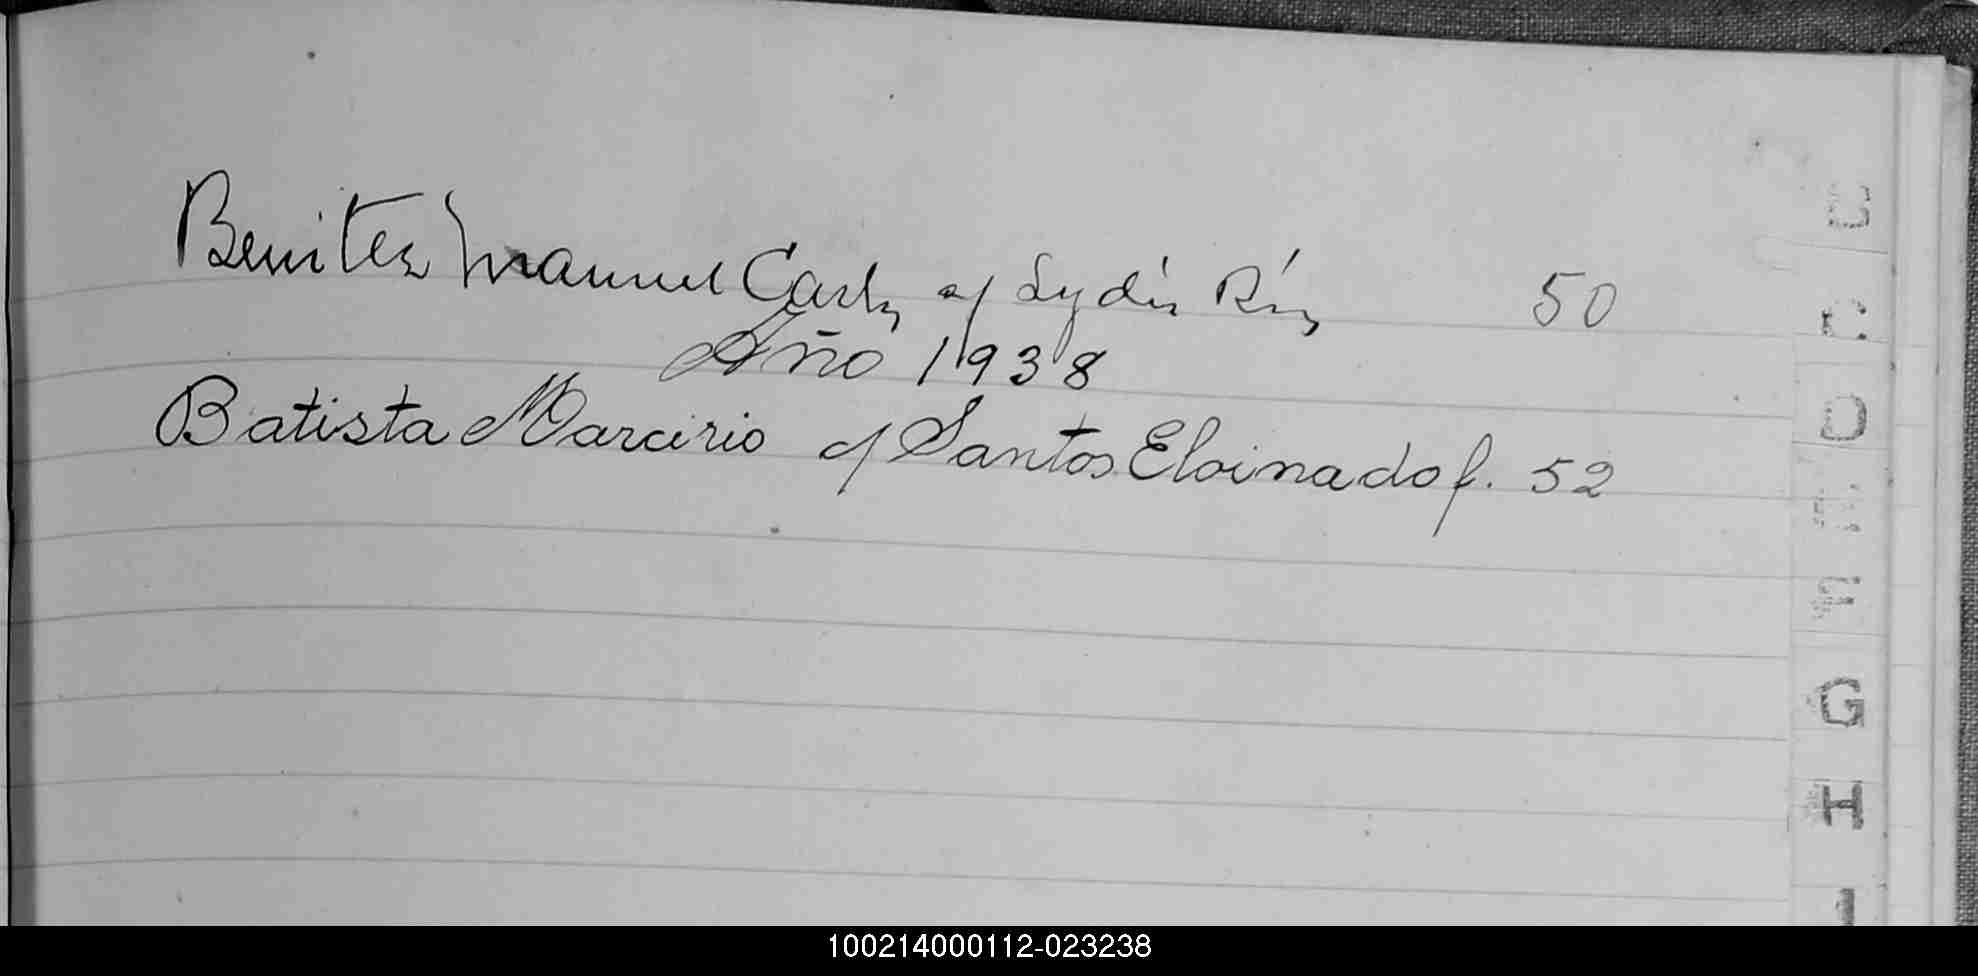 Benitez Manuel Carlos c/ Lydia Ríos 50
Año 1938
Batista Marcirio c/ Santos Eloina do f. 52
C
D
G
H
I
100214000112-023238